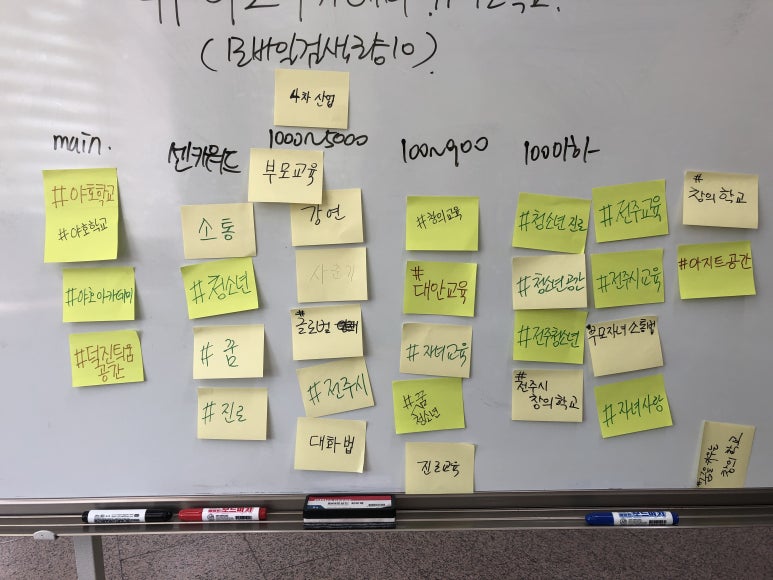 (모바일검색량10)
4차 산업
main.
센키워드
1000~5000
100~900
100이하
#야호학교
#야호학교
#야호아카데미
#덕진틔움
공간
소통
#청소년
#꿈
#진로
부모교육
강연
사춘기
#글로벌
#전주시
대화법
#창의교육
#
대안교육
#자녀교육
#꿈
청소년
진로교육
#청소년 진로
#청소년 공간
#전주청소년
#
전주시
창의학교
#전주교육
#전주시교육
부모자녀 소통법
#자녀사랑
#
창의 학교
#아지트공간
창의 학교